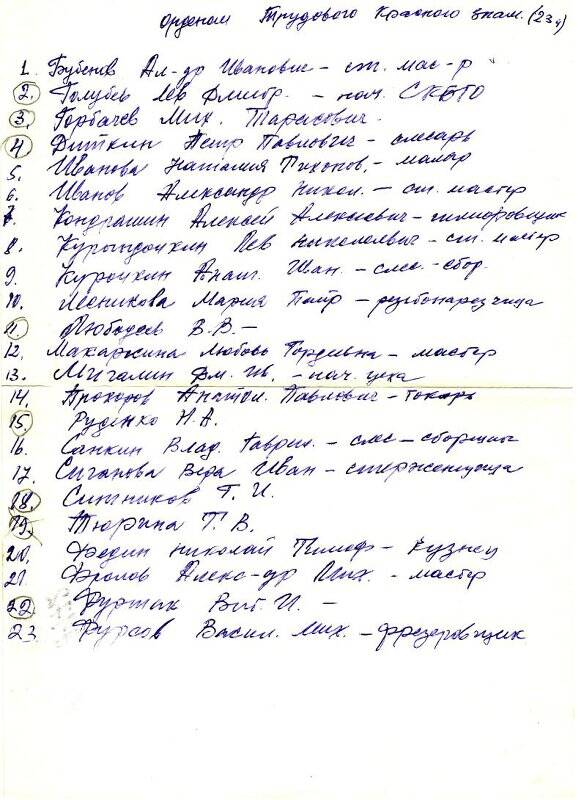 орденом Трудового Красного знам. (23 ч)
1. Бубенцв Ал-др Иванович - ст. мас-р
2. Голубев Лев Дмитр. - нач. СКБТО
3. Горбачев Мих. Тарасович.
4 Диткин Петр Павлович - слесарь
5. Иванова Наталия Тихонов. - маляр
6. Иванов Александр Никол. - ст. мастер
7. Кондрашин Алексей Алексеевич - шлифовщик
8. Курындочкин Лев Николаевич - ст. мастер
9. Курочкин Анат. Иван. - слес.-сбор.
10. Лесникова Мария Петр - резьбонарезчица
11. Любодеев В. В. -
12. Макаркина Любовь Гордеевна - мастер
13. Мигалин Вл. Ив. - нач. цеха
14. Прохоров Анатол. Павлович - токарь
15) Руденко Н. А.
16. Санкин Влад. Гаврил. - слес - сборщик
17. Сиганова Вера Иван - стерженщица
18. Ситников Г. И.
19. Тюрина Г. В.
20. Федин Николай Тимоф - кузнец
21 Фролов Алекс-др Мих. - мастер
22. Фуртак Вит. И. -
23. Фурсов Васил. Мих. - фрезеровщик